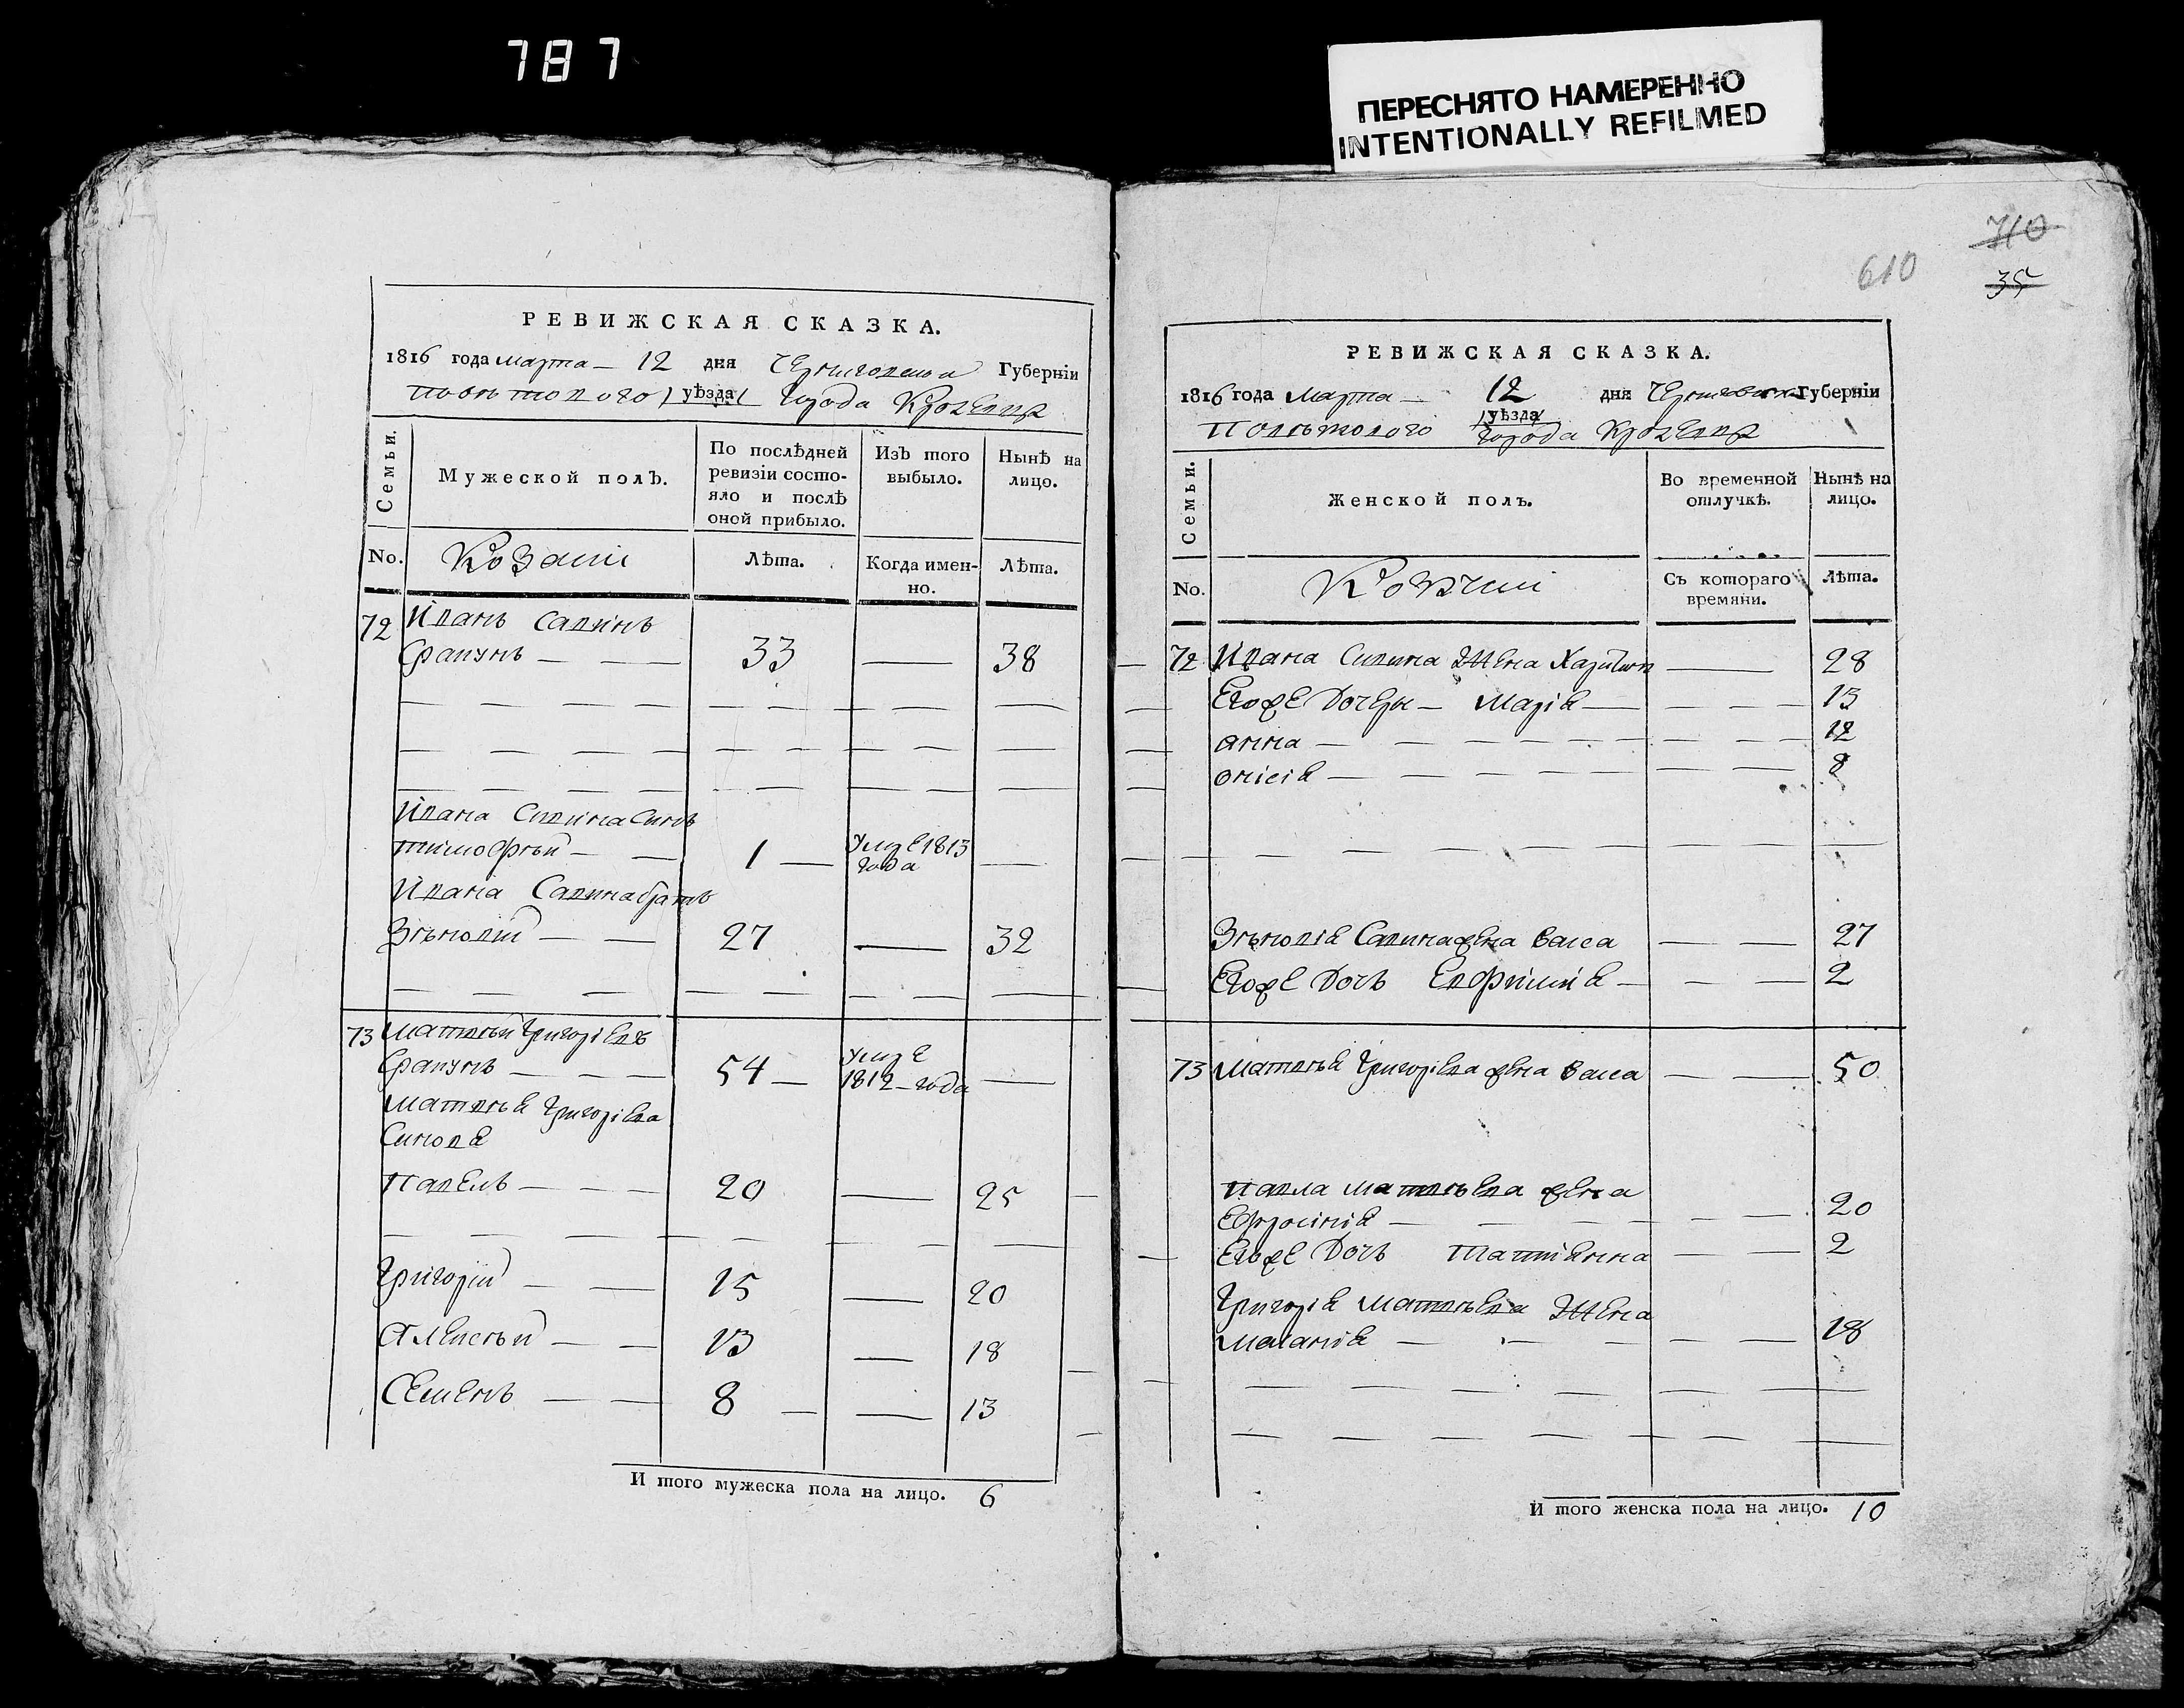 787
ПЕРЕСНЯТО НАМЕРЕННО
INTENTIONALLY REFILMED
710
610
35
РЕВИЖСКАЯ СКАЗКА.
1816 года марта — 12 дня Губерніи
уѣзда города
Семьи.
Мужеской полъ.
По послѣдней ревизіи состояло и послѣ оной прибыло.
Изъ того выбыло.
Нынѣ на лицо.
No.
Козаки
Лѣта.
Когда именно.
Лѣта.
72 Иванъ Савинъ
33 — 38
Ивана Савина Синъ
тимофѣй — 1 — Умре 1813 года —
Ивана Савина братъ
Зѣновій — 27 — 32
73 Матвѣй Григоріевъ
54 — Умре 1812 — года —
Матвѣя Григоріева
Синовя
Павелъ — 20 — 25
Григорій — 15 — 20
Алексѣй — 13 — 18
Семенъ — 8 — 13
И того мужеска пола на лицо. 6
РЕВИЖСКАЯ СКАЗКА.
1816 года Марта — 12 дня Губерніи
уѣзда
города
Семьи.
Женской полъ.
Во временной отлучкѣ.
Нынѣ на лицо.
No.
Козачки
Съ котораго времяни.
Лѣта.
72 Ивана Савина Жена — 28
Егоже Дочеры — Марія — 13
анна — 12
онісія — 8
Зѣновія Савина жена Васса — 27
Егоже Дочь Евфимия — 2
73 Матвѣя Григоріева жена Васса — 50
Павла Матвѣева жена
Ефросинія — 20
Егоже Дочь Таттіянна — 2
Григорія Матвѣева Жена
Маланія — 18
И того женска пола на лицо. 10